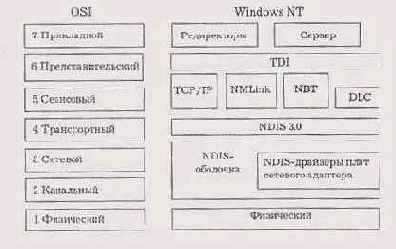 OSI
Windows NT
7. Прикладной
6 Представительский
5 Сеансовый
4 Транспортный
3 Сетевой
2 Канальный
1 Физический
Редиректоры
Сервер
TDI
TCP/IP
NMLink
NBT
DLC
NDIS 3.0
NDIS-
оболочка
NDIS-драйверы плат
сетевого адаптера
Физический